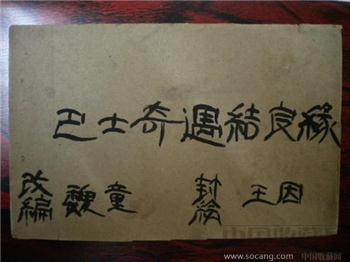 巴士奇遇結良緣
改編 魏童 封繪 王因
www.socang.com 中国收藏网